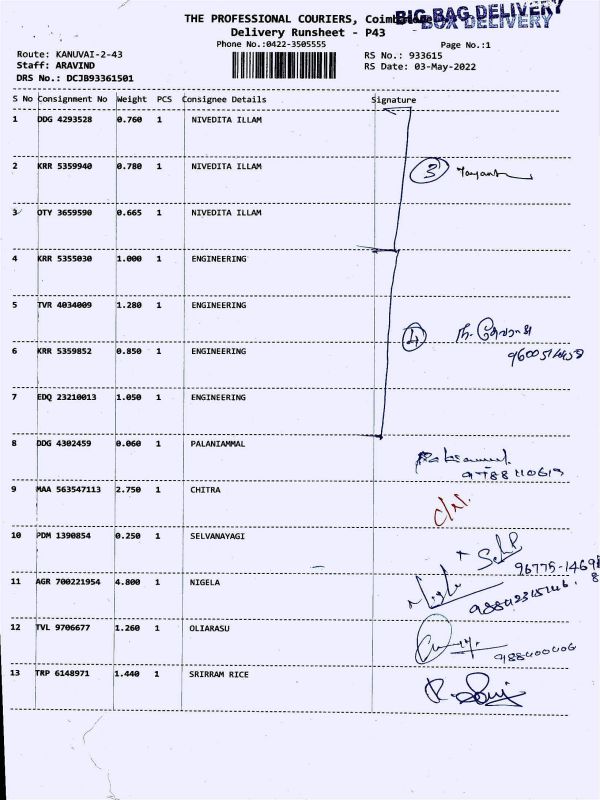 THE PROFESSIONAL COURIERS,
BIG BAG DELIVERY
BOX DELIVERY
Delivery Runsheet - P43
Phone No.:0422-3505555
Page No.:1
Route: KANUVAI-2-43
RS No.: 933615
Staff: ARAVIND
RS Date: 03-May-2022
DRS No.: DCJB93361501
S No Consignment No Weight PCS Consignee Details Signature
1 DDG 4293528 0.760 1 NIVEDITA ILLAM
2 KRR 5359940 0.780 1 NIVEDITA ILLAM
3
3 OTY 3659590 0.665 1 NIVEDITA ILLAM
4 KRR 5355030 1.000 1 ENGINEERING
5 TVR 4034009 1.280 1 ENGINEERING
4
6 KRR 5359852 0.850 1 ENGINEERING
7 EDQ 23210013 1.050 1 ENGINEERING
8 DDG 4302459 0.060 1 PALANIAMMAL
9 MAA 563547113 2.750 1 CHITRA
10 PDM 1390854 0.250 1 SELVANAYAGI
11 AGR 700221954 4.800 1 NIGELA
12 TVL 9706677 1.260 1 OLIARASU
13 TRP 6148971 1.440 1 SRIRRAM RICE